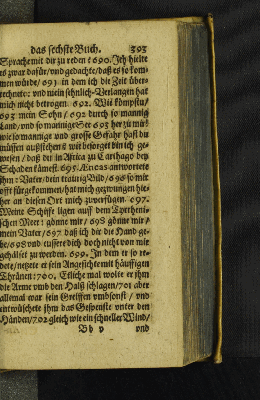 das sechste Buch. 393
Sprache mit dir zu reden! 690. Ich hielte
es zwar dafür/ vnd gedachte/ daß es so kom-
men würde/ 691 in dem ich die Zeit über-
rechnete: vnd mein sehnlich-Verlangen hat
mich nicht betrogen. 692. Wie kömpstu/
693 mein Sohn/ 692 durch so mannig
Land/ vnd so mannige See 693 her zu mir?
wie so mannige vnd grosse Gefahr hastu
müssen außstehen? wie besorget bin ich ge-
wesen/ daß dir in Africa zu Carthago kein
Schaden kämest. 695. Æneas antwortete
ihm: Vater/ dein traurig Bild/ 696 so mir
offt fürgekommen/ hat mich gezwungen hie-
her an diesen Ort mich zuverfügen. 697.
Meine Schiffe ligen auff dem Tyrrheni-
schen Meer: gönne mir/ 698 gönne mir/
mein Vater/ 697 daß ich dir die Hand ge-
be/ 698 vnd eussere dich doch nicht von mir
gehälset zu werden. 699. In dem er so re-
dete/ netzete er sein Angesichte mit häuffigen
Thränen: 700. Etliche mal wolte er ihm
die Arme vmb den Halß schlagen/ 701 aber
allemal war sein Greiffen vmbsonst/ vnd
entwüschete ihm das Gespenste vnter den
Händen/ 702 gleich wie ein schneller Wind/
Bb v vnd